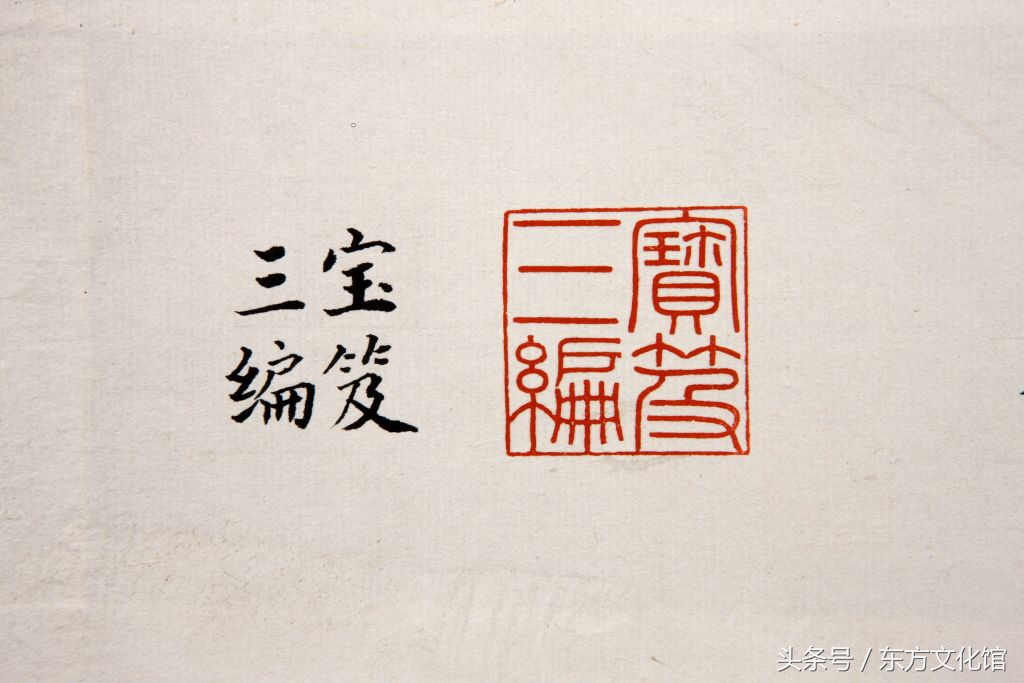 宝笈
三编
寶笈
三編
头条号 / 东方文化馆